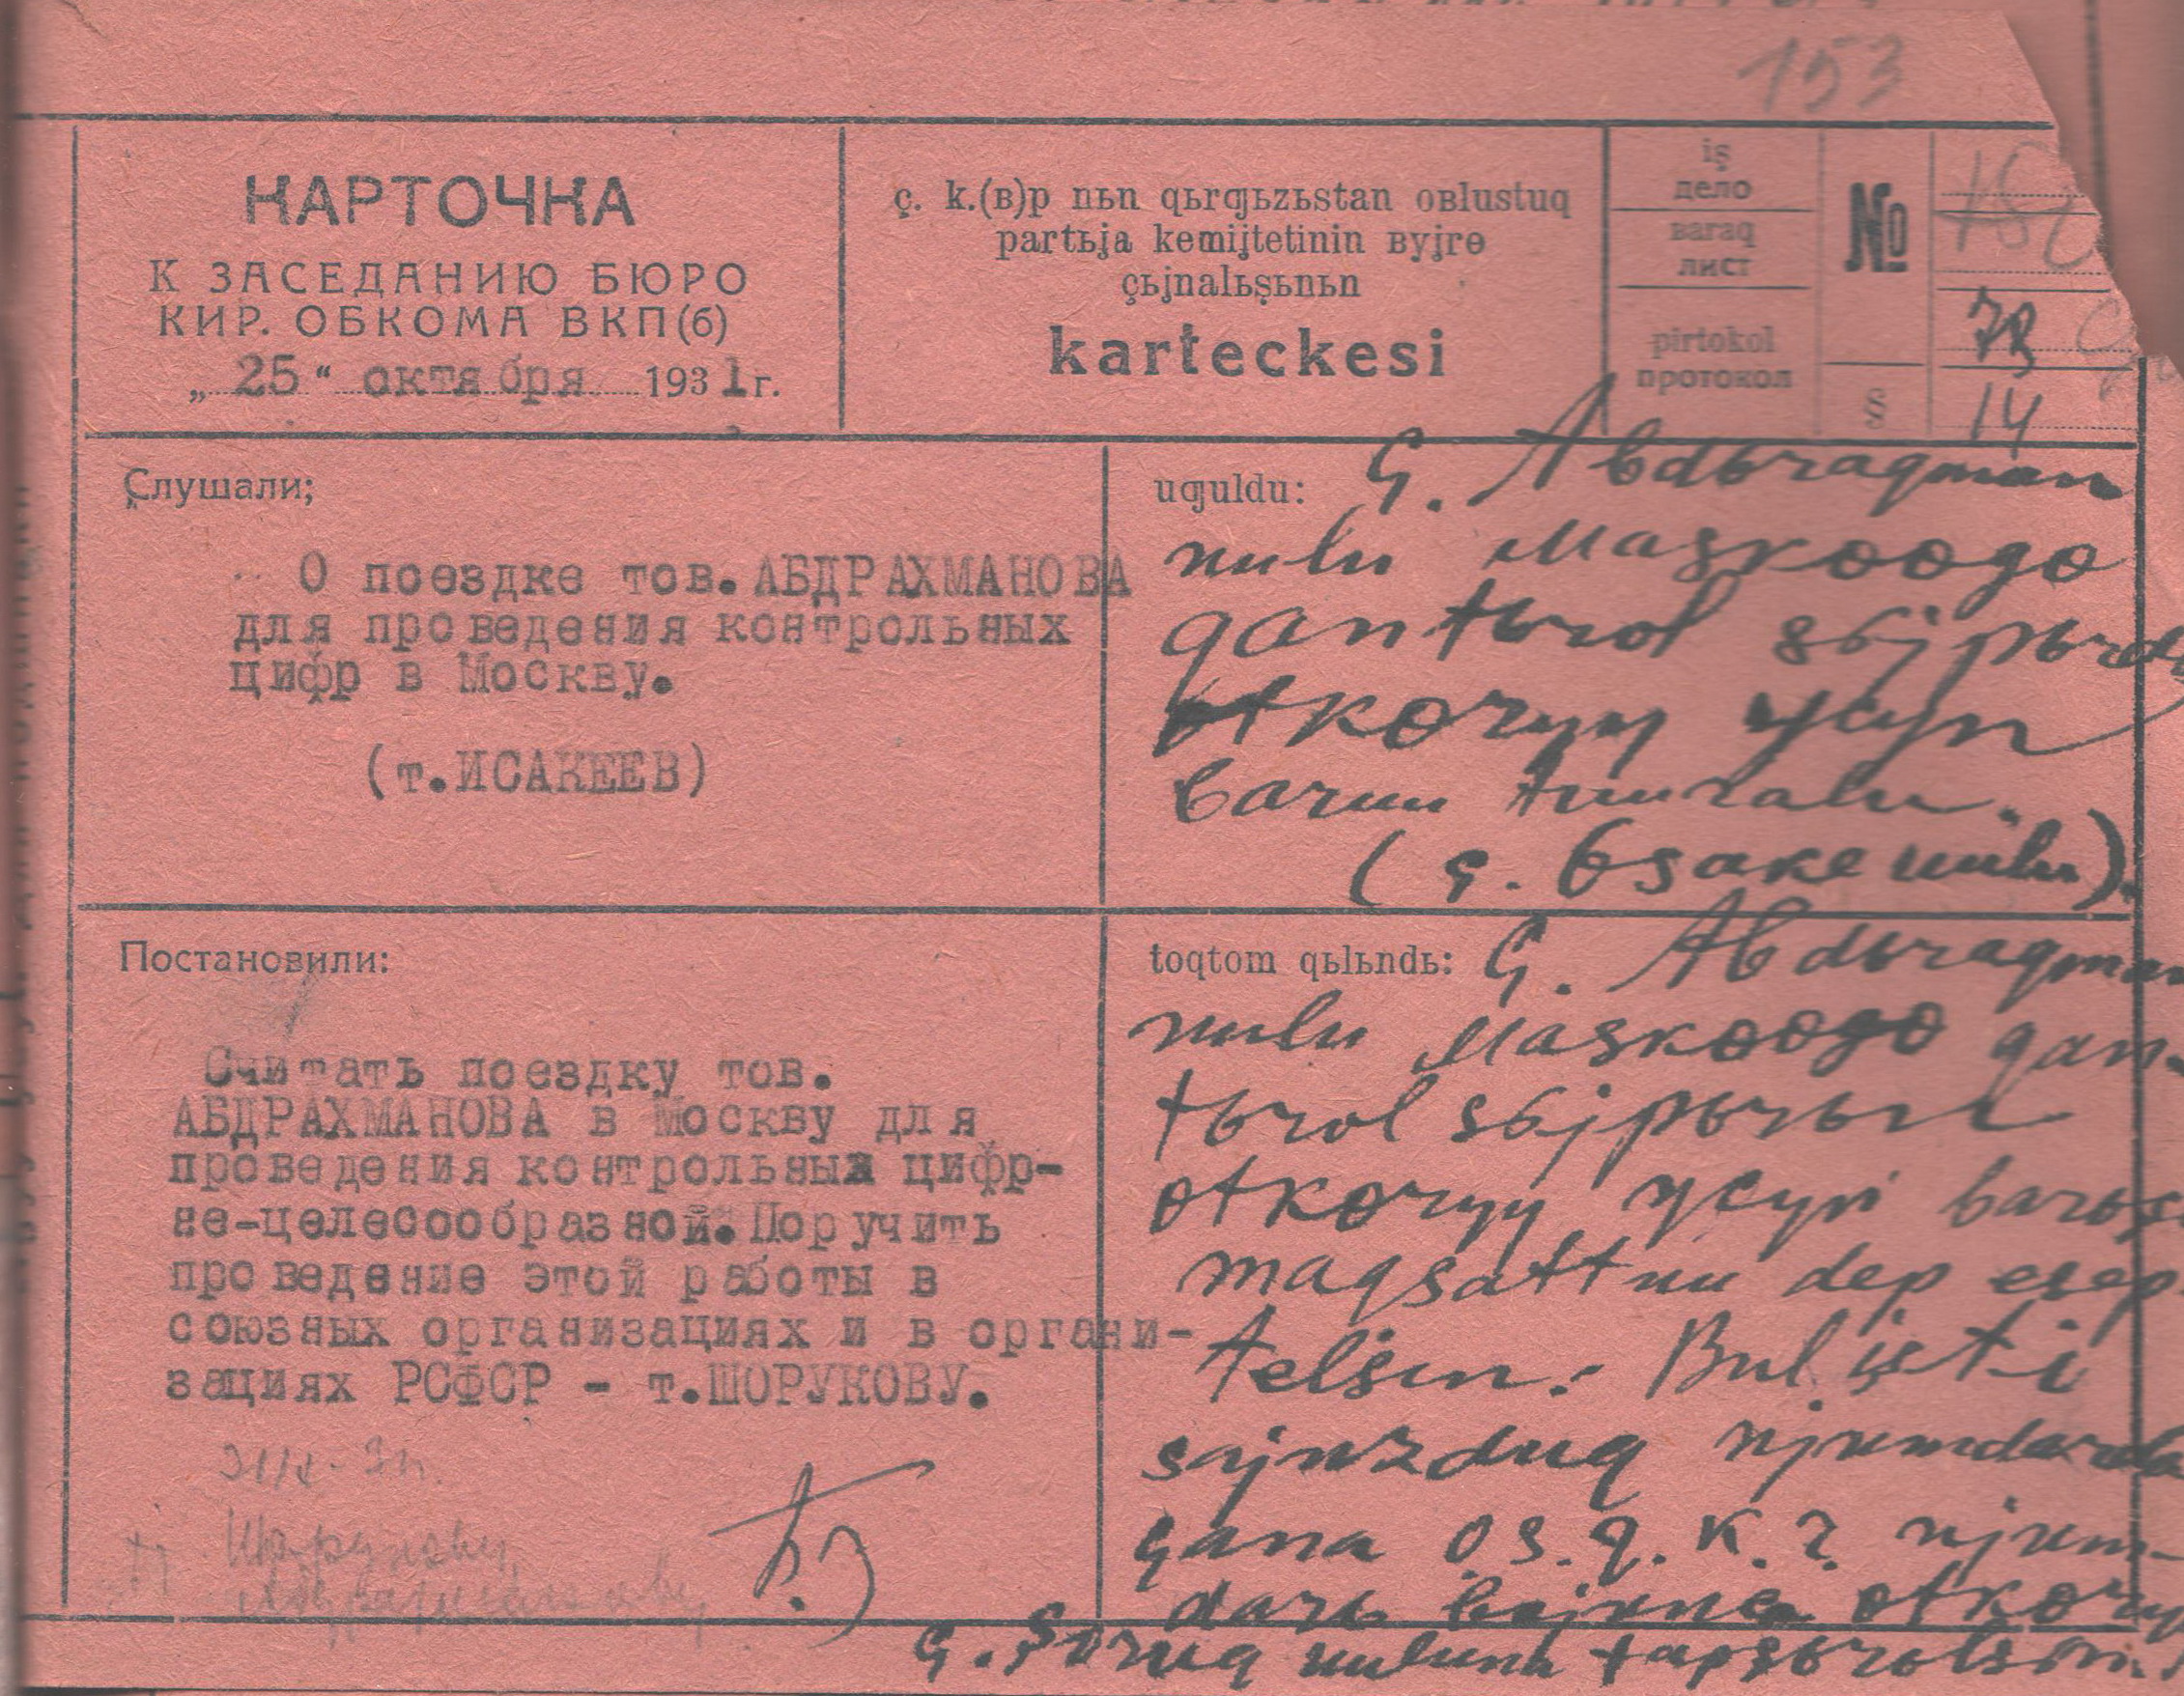 153
КАРТОЧКА
К ЗАСЕДАНИЮ БЮРО
КИР. ОБКОМА ВКП(б)
„ 25 “ октября 1931 г.
ç. k.(ʙ)p nьn qьrƣьzьstan oʙlustuq
partьja kemijtetinin ʙyjrɵ
çьjnalьşьnьn
karteckesi
iş
дело
ʙaraq
лист
pirtokol
протокол
№
§
14
Слушали;
О поездке тов. АБДРАХМАНОВА
для проведения контрольных
цифр в Москву.
(т.ИСАКЕЕВ)
uƣuldu: Ç. Abdьraqman
uulu Maskɵɵgɵ
qantьrol
ɵtkɵryy ycyn
baruu tuuralu.
(ç. Ьsake uulu).
Постановили:
Считать поездку тов.
АБДРАХМАНОВА в Москву для
проведения контрольных цифр-
не-целесообразной.Поручить
проведение этой работы в
союзных организациях и в органи-
зациях РСФСР - т.ШОРУКОВУ.
toqtom qьlьndь: Ç. Abdьraqman
uulu Maskɵɵgɵ qan-
tьrol sьjpьrьn
ɵtkɵryy ycyn barьş
maqsattuu dep esep
telsin. Bul işti
sojuzduq ujumdarda
çana ɵ.s.q.k.r. ujum-
darь ɵtkɵry
ç. Şoruq uuluna tapşьrьlsьn.